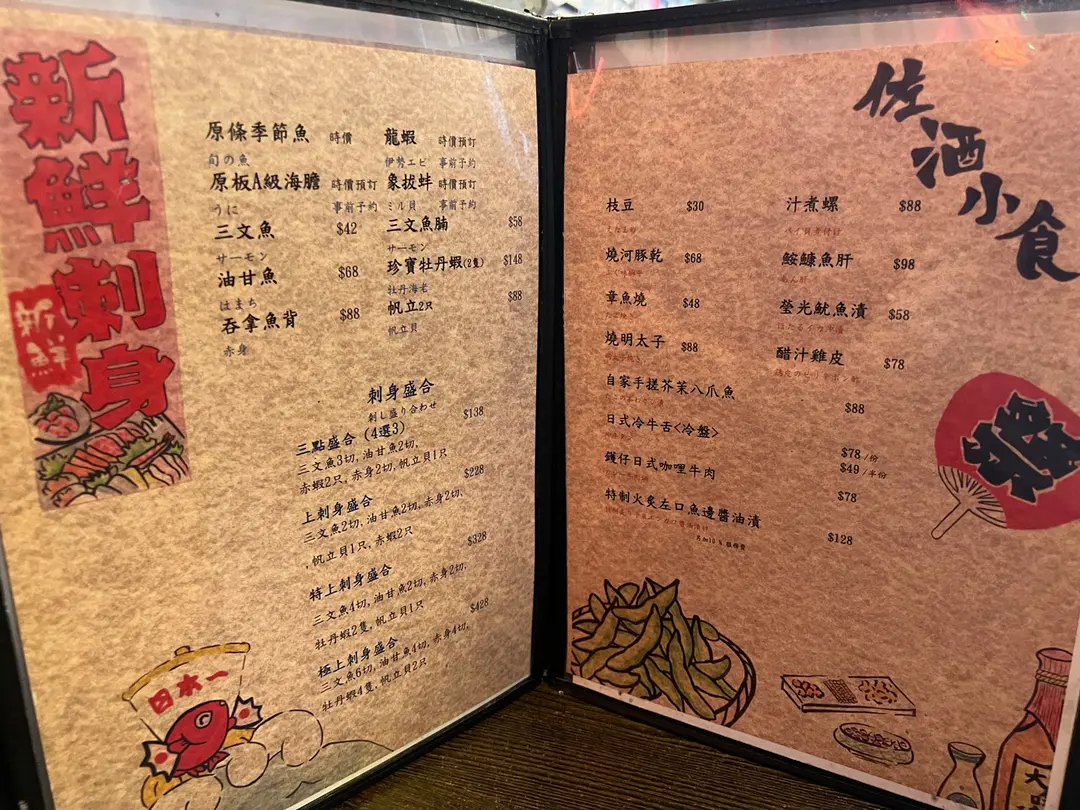 新鮮刺身
新鮮
原條季節魚 時價
旬の魚
原板A級海膽 時價預訂
うに 事前予約
三文魚 $42
サーモン
油甘魚 $68
はまち
吞拿魚背 $88
赤身
龍蝦 時價預訂
伊勢エビ 事前予約
象拔蚌 時價預訂
ミル貝 事前予約
三文魚腩 $58
サーモン
珍寶牡丹蝦(2隻) $148
牡丹海老
帆立2只 $88
帆立貝
刺身盛合
刺し盛り合わせ
三點盛合 (4選3) $138
三文魚3切, 油甘魚2切,
赤蝦2只, 赤身2切, 帆立貝1只
上刺身盛合 $228
三文魚2切, 油甘魚2切, 赤身2切,
, 帆立貝1只, 赤蝦2只
特上刺身盛合 $328
三文魚4切, 油甘魚2切, 赤身2切,
牡丹蝦2隻, 帆立貝1只
極上刺身盛合 $428
三文魚6切, 油甘魚4切, 赤身4切,
牡丹蝦4隻, 帆立貝2只
日本一
佐酒小食
枝豆 $30
燒河豚乾 $68
章魚燒 $48
燒明太子 $88
汁煮螺 $88
鮟鱇魚肝 $98
螢光魷魚漬 $58
ほたるイカ沖漬
醋汁雞皮 $78
自家手搓芥茉八爪魚 $88
日式冷牛舌<冷盤> $78 /份
$49 /半份
鑊仔日式咖喱牛肉 $78
特制火炙左口魚邊醬油漬 $128
另加10％服務費
祭